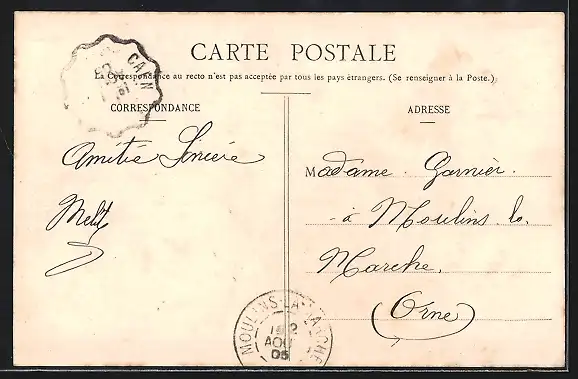 CARTE POSTALE
La Correspondance au recto n'est pas acceptée par tous les pays étrangers. (Se renseigner à la Poste.)
CORRESPONDANCE
ADRESSE
CAEN
Amitié Sincère
Madame Garnier
à Moulins la
Marche.
(Orne)
MOULINS-LA-MARCHE
AOU
05